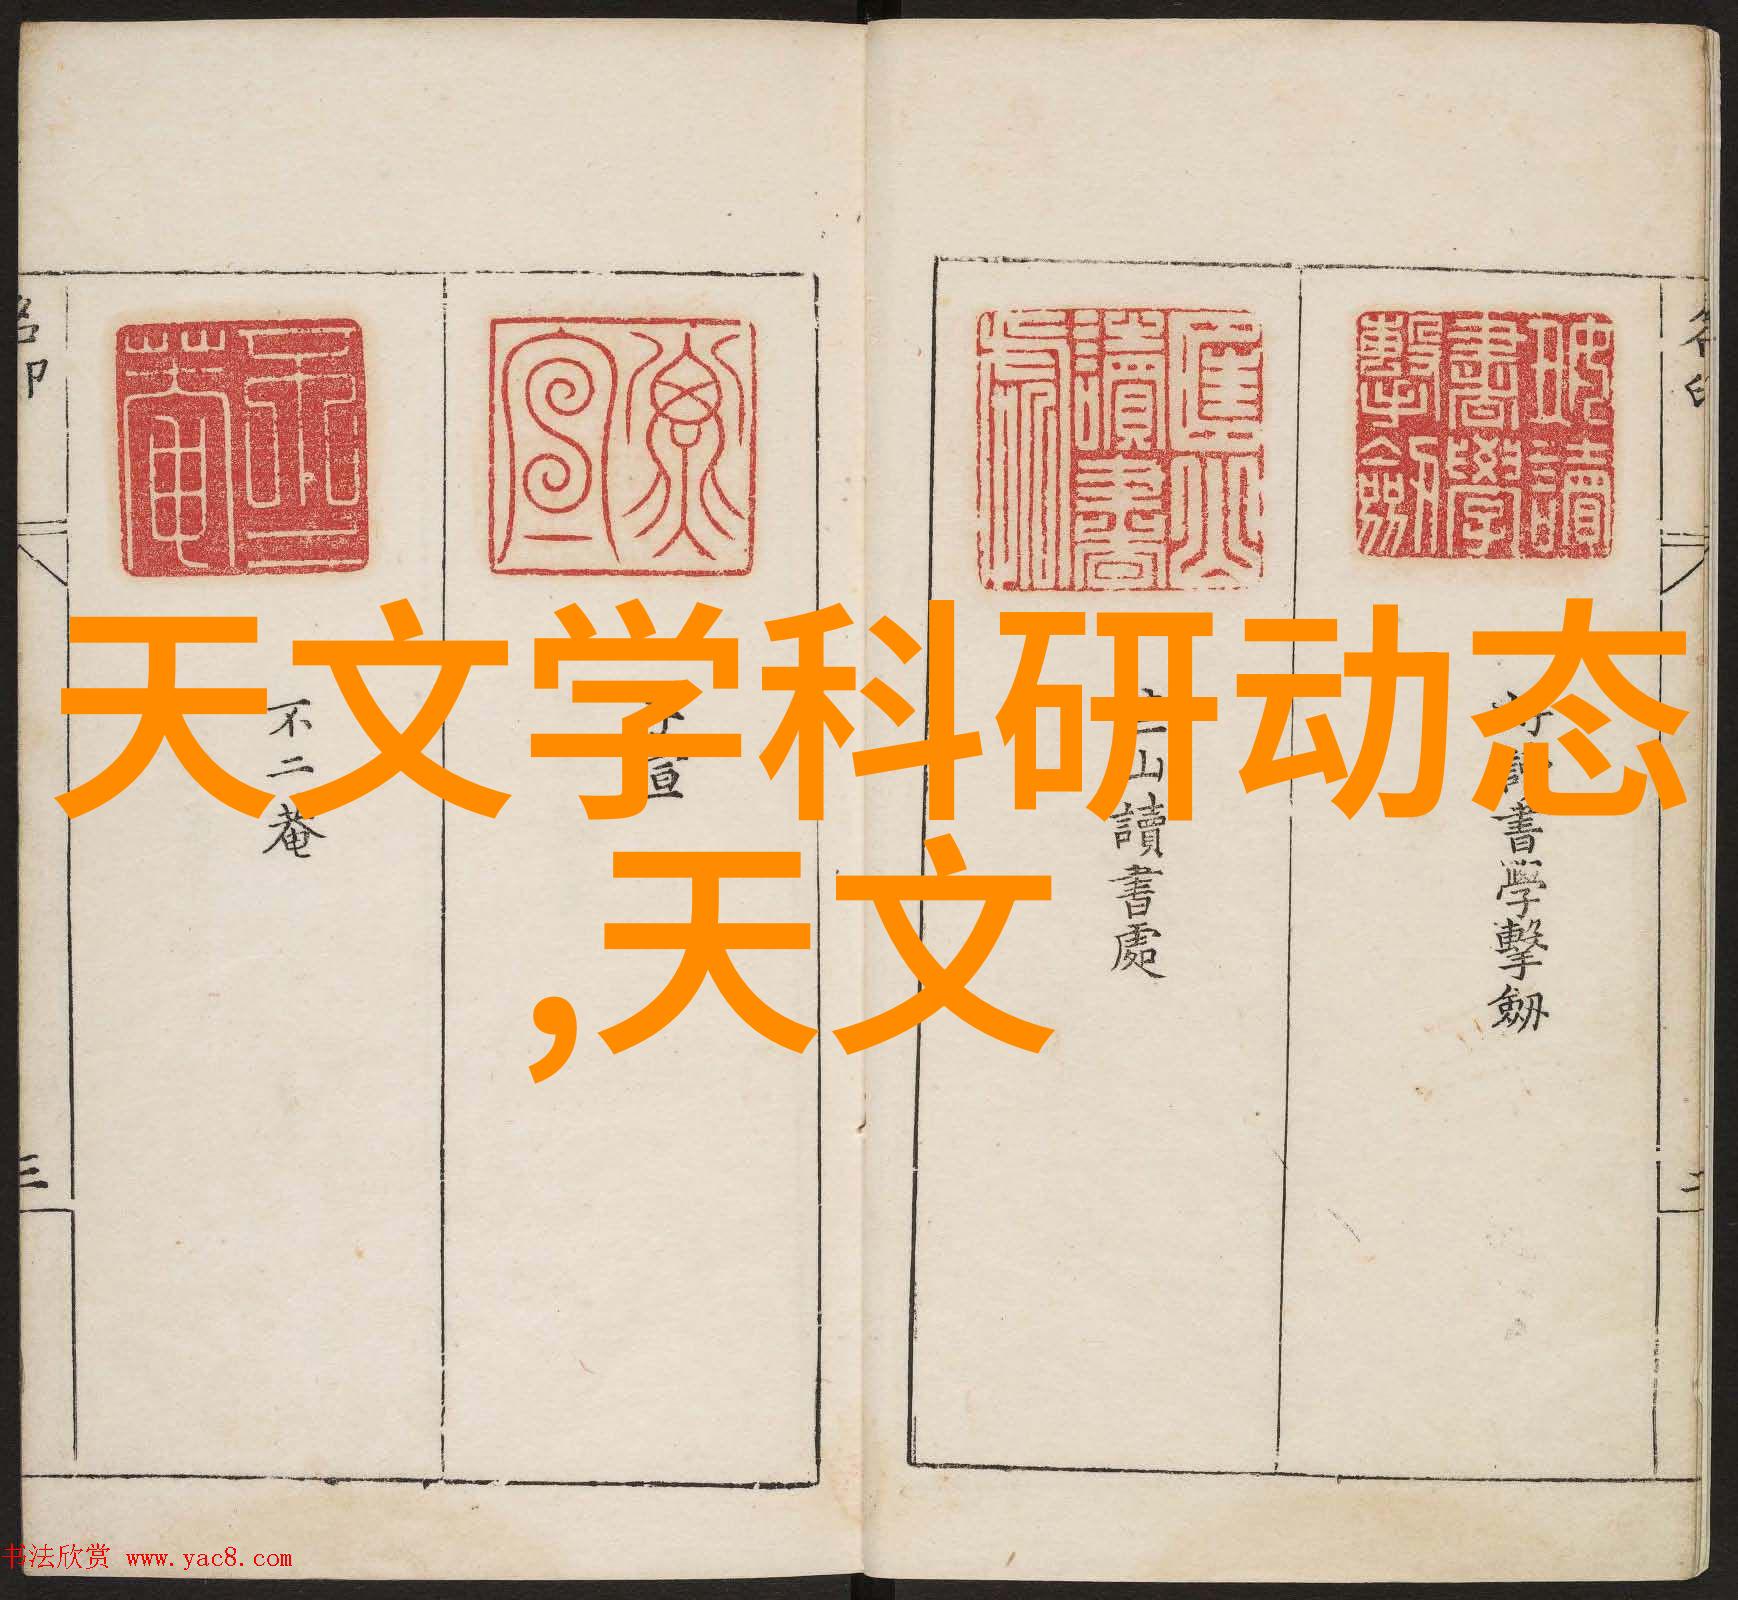 天文学科研动态
,天文
好讀書學擊劒
山讀書處
不二菴
名印
三
书法欣赏 www.yac8.com